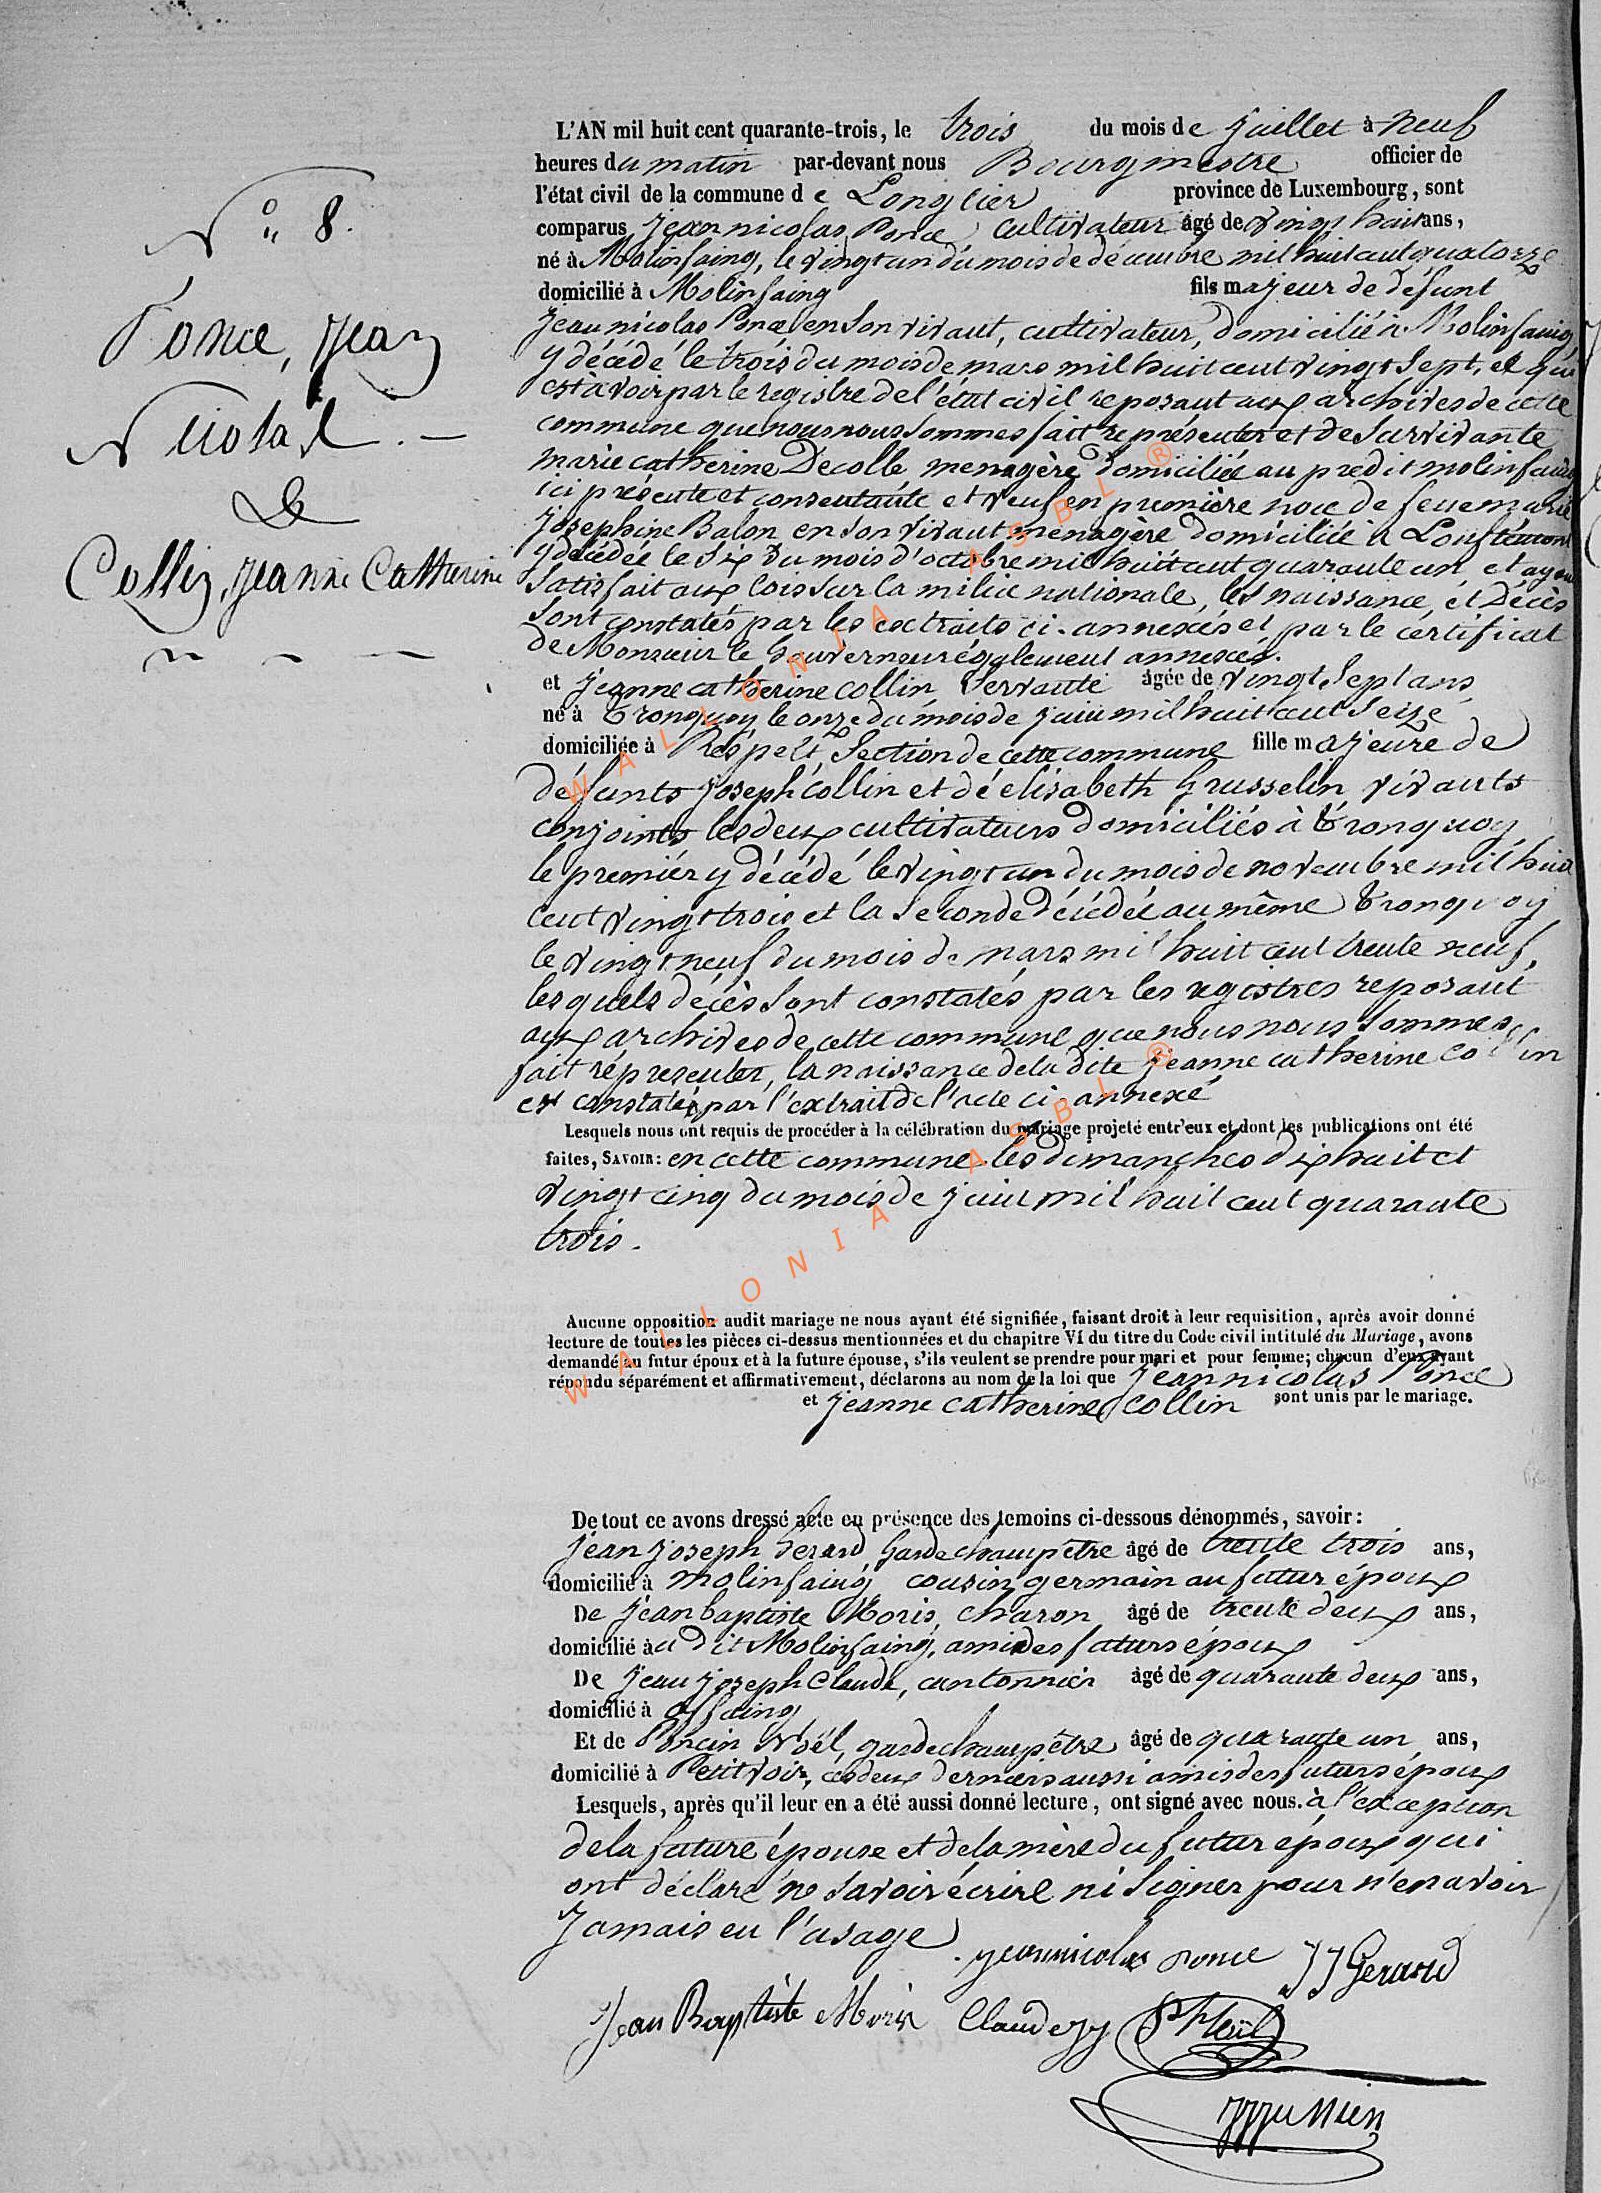 N° 8.
Ponce, Jean
Nicolas. —
&
Collin, Jeanne Catherine
L'AN mil huit cent quarante-trois, le trois du mois de juillet à neuf
heures du matin par-devant nous Bourgmestre officier de
l'état civil de la commune de Longlier province de Luxembourg, sont
comparus jean nicolas Ponce cultivateur âgé de vingt huit ans,
né à Molinfaing, le vingt un du mois de décembre mil huit cent quatorze
domicilié à Molinfaing fils majeur de défunt
jean nicolas Ponce en son vivant, cultivateur, domicilié à Molinfaing
y décédé le trois du mois de mars mil huit cent vingt sept, ce qui
est à voir par le registre de l'état civil reposant aux archives de cette
commune que nous nous sommes fait représenter et de survivante
marie catherine Decolle menagère domiciliée au predit molinfaing
ici présente et consentante et veuf en première noce de feue marie
josephine Balon en son vivant menagère domiciliée à
y décédée le six du mois d'octobre mil huit cent quarante un, et ayant
satisfait aux lois sur la milice nationale, les naissance, et décès
sont constatés par les extraits ci-annexés et par le certificat
de Monsieur le Gouverneur également annexés.
et jeanne catherine collin servante âgée de vingt sept ans
né à Tronquoy le onze du mois de juin mil huit cent seize
domiciliée à Respelt, section de cette commune fille majeure de
défunts joseph collin et de élisabeth Grusselin vivants
conjoints les deux cultivateurs domiciliés à Tronquoy
le premier y décédé le vingt un du mois de novembre mil huit
cent vingt trois et la seconde décédée au même Tronquoy
le vingt neuf du mois de mars mil huit cent trente neuf,
lesquels décès sont constatés par les registres reposant
aux archives de cette commune que nous nous sommes
fait représenter, la naissance de la dite jeanne catherine collin
est constatée par l'extrait de l'acte ci-annexé
Lesquels nous ont requis de procéder à la célébration du mariage projeté entr'eux et dont les publications ont été
faites, SAVOIR: en cette commune les dimanches dix huit et
vingt cinq du mois de juin mil huit cent quarante
trois.
Aucune opposition audit mariage ne nous ayant été signifiée, faisant droit à leur requisition, après avoir donné
lecture de toutes les pièces ci-dessus mentionnées et du chapitre VI du titre du Code civil intitulé du Mariage, avons
demandé au futur époux et à la future épouse, s'ils veulent se prendre pour mari et pour femme; chacun d'eux ayant
répondu séparément et affirmativement, déclarons au nom de la loi que jean nicolas Ponce
et jeanne catherine collin sont unis par le mariage.
De tout ce avons dressé acte en présence des temoins ci-dessous dénommés, savoir:
jean joseph Gerard, Garde champêtre âgé de trente trois ans,
domicilié à molinfaing cousin germain au futur époux
De jean baptiste Moris, charon âgé de trente deux ans,
domicilié au dit Molinfaing, ami des futurs époux
De jean joseph Claude, cantonnier âgé de quarante deux ans,
domicilié à offaing
Et de Poncin Noël, garde champêtre âgé de quarante un ans,
domicilié à Petitvoir, ces deux derniers aussi amis des futurs époux
Lesquels, après qu'il leur en a été aussi donné lecture, ont signé avec nous. à l'exception
de la future épouse et de la mère du futur époux qui
ont déclaré ne savoir écrire ni signer pour n'en avoir
jamais eu l'usage
jean nicolas Ponce JJ Gerard
Jean Baptiste Moris Claude JJ
WALLONIA ASBL ®
WALLONIA ASBL ®